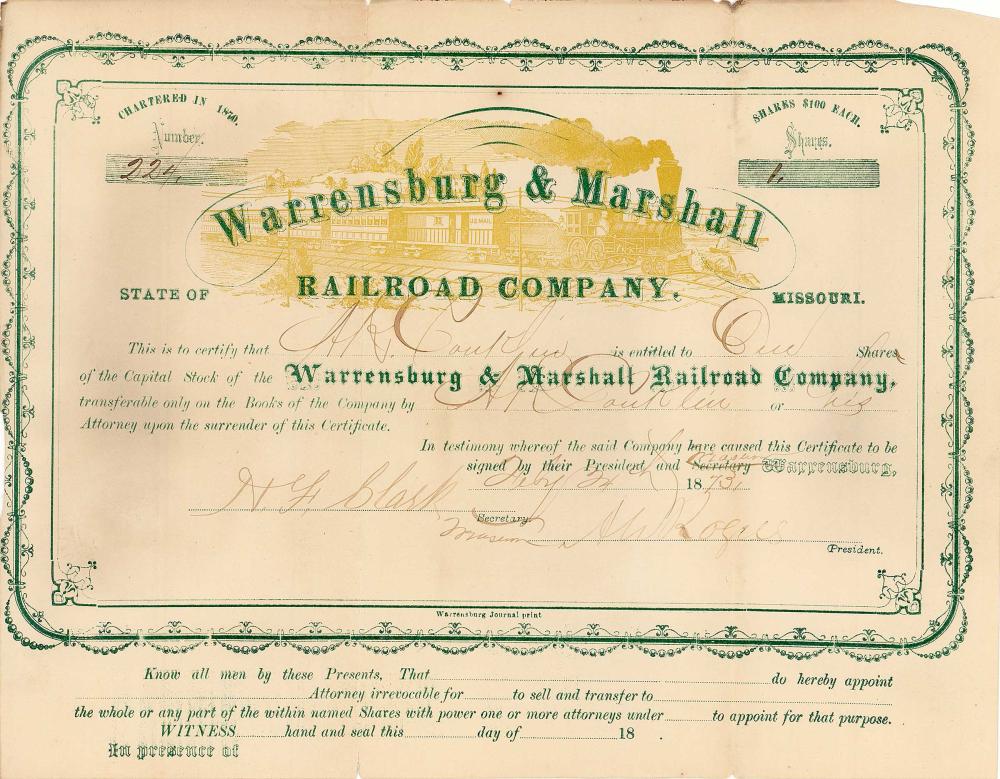 CHARTERED IN 1870.
SHARES $100 EACH.
Number.
Shares.
224
1
Warrensburg & Marshall
RAILROAD COMPANY.
STATE OF
MISSOURI.
This is to certify that A R. Conklin is entitled to One Shares
of the Capital Stock of the Warrensburg & Marshall Railroad Company,
transferable only on the Books of the Company by A R Conklin or his
Attorney upon the surrender of this Certificate.
In testimony whereof the said Company have caused this Certificate to be
signed by their President and Secretary Warrensburg,
Feby 1873
H F Clark
Secretary.
President.
Warrensburg Journal print
Know all men by these Presents, That do hereby appoint
Attorney irrevocable for to sell and transfer to
the whole or any part of the within named Shares with power one or more attorneys under to appoint for that purpose.
WITNESS hand and seal this day of 18 .
In presence of